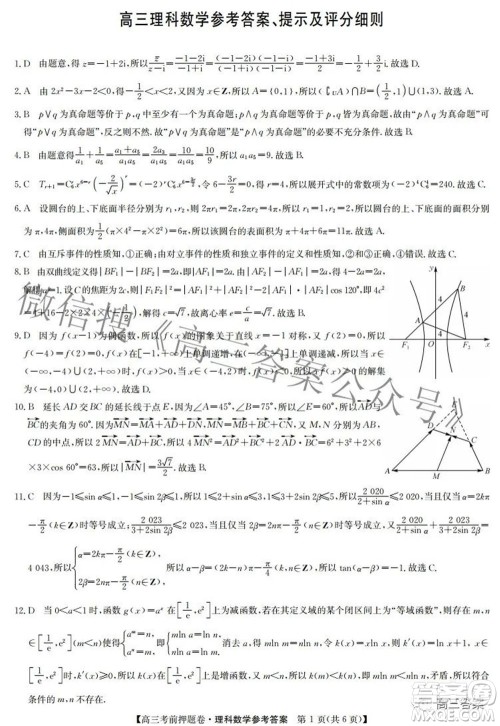 高三理科数学参考答案、提示及评分细则
1. D 由题意,得 z=-1+2i,所以 z̄/(z-i)=(-1-2i)/(-1+i)=(-1-2i)(-1-i)/((-1+i)(-1-i))=(-1+3i)/2=-1/2+3/2 i. 故选 D.
2. A 由 2x²-3x-2<0,得 -1/2<x<2,又因为 x∈Z,所以 A={0,1},所以(∁ A)∩B=(-1/2,0)∪(1,3). 故选 A.
3. B p∨q 为真命题等价于 p,q 中至少有一个为真命题;p∧q 为真命题等价于 p,q 皆为真命题,故由“p∧q 为真命题”可
得“p∨q 为真命题”,反之则不然. 故“p∨q 为真命题”是“p∧q 为真命题”的必要不充分条件. 故选 B.
4. B 由题意得
所以 故选 B.
5. C
令 得 r=4,所以展开式中的常数项为(-2)⁴C₆⁴=240. 故选 C.
6. A 设圆台的上、下底面半径分别为 r₁,r₂,则 2πr₁=π,2πr₂=4π,解得 r₁=1/2,r₂=2,所以圆台的上、下底面面积分别
为 π/4,4π,侧面面积为 所以圆台的表面积为 π/4+4π+ =11π. 故选 A.
7. C 由互斥事件的性质,①正确;由对立事件的性质和独立事件的定义,可得②和③正确,④错误. 故选 C.
8. B 由双曲线定义得|BF₁|-|BF₂|=2a,即|AF₁|=2a,
设 C 的焦距为 2c,则|F₁F₂|²=|AF₁|²+|AF₂|²-2|AF₁|·|AF₂|cos120°,即 4c²
=4+16-2×2×4×(-1/2),解得 c=√7. 故离心率 e=c/a=√7. 故选 B.
9. D 因为 f(x-1)为偶函数,所以 f(x)的图象关于直线 x=-1 对称. 又 f(2)=0,所以
f(-4)=f(2)=0,f(x)在[-1,+∞)上单调递增,所以 f(x)在(-∞,-1]上单调递减,所以当 x∈
(-4,2)时,f(x)<0,当 x∈ (2,+∞)时,f(x)>0,
(-4,0)∪(2,+∞). 故选 D.
10. B 延长 AD 交 BC 的延长线于点 E,因为∠A=45°,∠B=75°,所以∠E=60°,所以AD与
BC的夹角为 60°. 因为MN=MA+AD+DN,MN=MB+BC+CN,又 M,N 分别为 AB,
CD 的中点,所以 2MN=AD+BC,所以 4MN²=AD²+BC²+2AD·BC=6²+3²+2×6
×3×cos 60°=63,所以|MN|=3√7/2. 故选 B.
11. C 因为 -1≤sin α≤1,-1≤sin 2β≤1,所以 1≤2+sin α≤3,1≤3+2sin 2β≤5,所以 2 020/(2+sin α)≤2 020,当 α=2kπ-
π/2(k∈Z)时等号成立; 2 023/(3+2sin 2β)≤2 023,当 2β=2nπ-π/2(n∈Z)时等号成立,又
4 043,所以{α=2kπ-π/2(k∈Z), 2β=2nπ-π/2(n∈Z), 所以 故选 C.
12. D 当 0<a<1 时,函数 g(x)=aˣ 在[1/e,e²]上为减函数,若在其定义域的某个闭区间上为“等域函数”,则存在 m,n
∈[1/e,e²](m<n)使得{aᵐ=n, aⁿ=m, 即{mln a=ln n, nln a=ln m, 消去 ln a,得 mln m=nln n,令 k(x)=xln x,则 k′(x)=ln x+1. 当 x∈
[1/e,e²]时,k′(x)≥0,所以 k(x)在[1/e,e²]上是增函数,所以由 m<n,可得 k(m)<k(n),即 mln m<nln n,与 mln m=
微信搜《高三答案公众号》
高三答案
【高三考前押题卷·理科数学参考答案 第 1 页(共 6 页)】